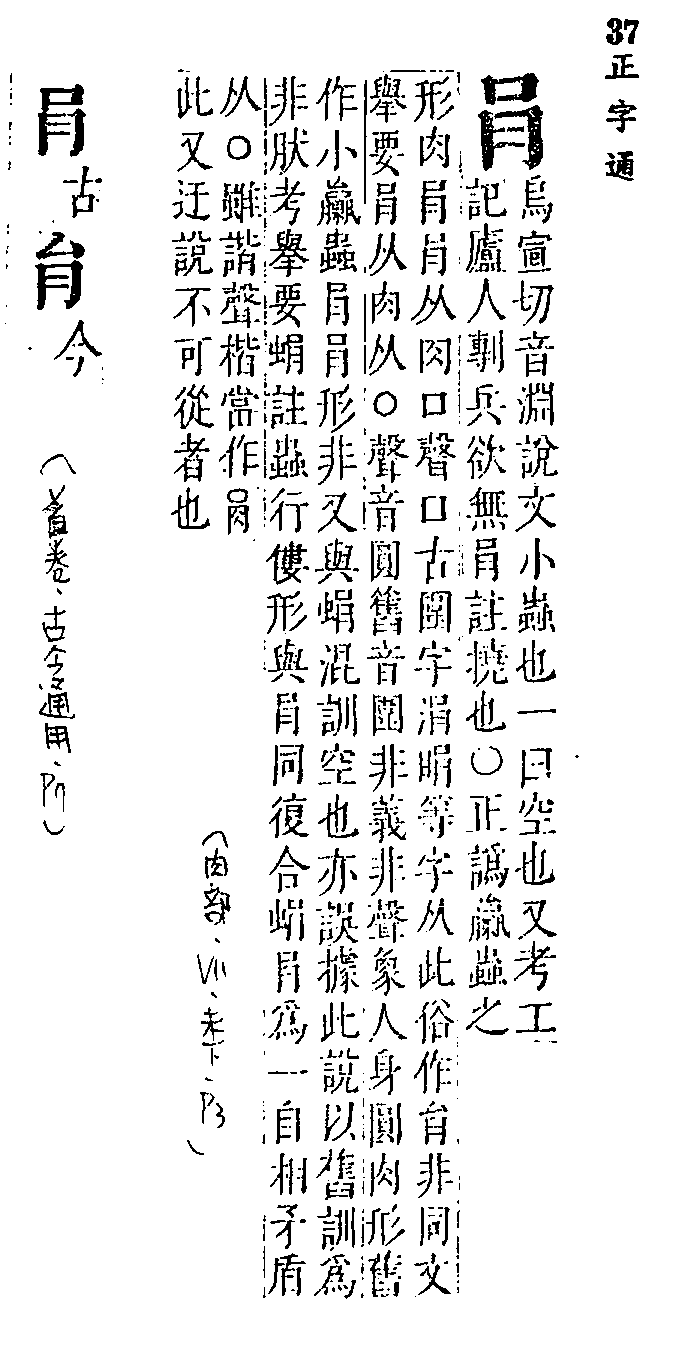 37
正字通
肙
烏宣切音淵說文小蟲也一曰空也又考工
記廬人剸兵欲無肙註撓也○正譌蠃蟲之
形肉肙肙从肉口聲口古圍字涓睊等字从此俗作肻非同文
舉要肙从肉从○聲音圓舊音圍非義非聲象人身圓肉形舊
作小蠃蟲肙肙形非又與蜎混訓空也亦誤據此說以舊訓爲
非肰考舉要蜎註蟲行僂形與肙同復合蜎肙爲一自相矛盾
从○雖諧聲楷當作肙
此又迂說不可從者也
(肉部、VII、未下、P3)
肙古
今
(舊卷、古今通用、P11)